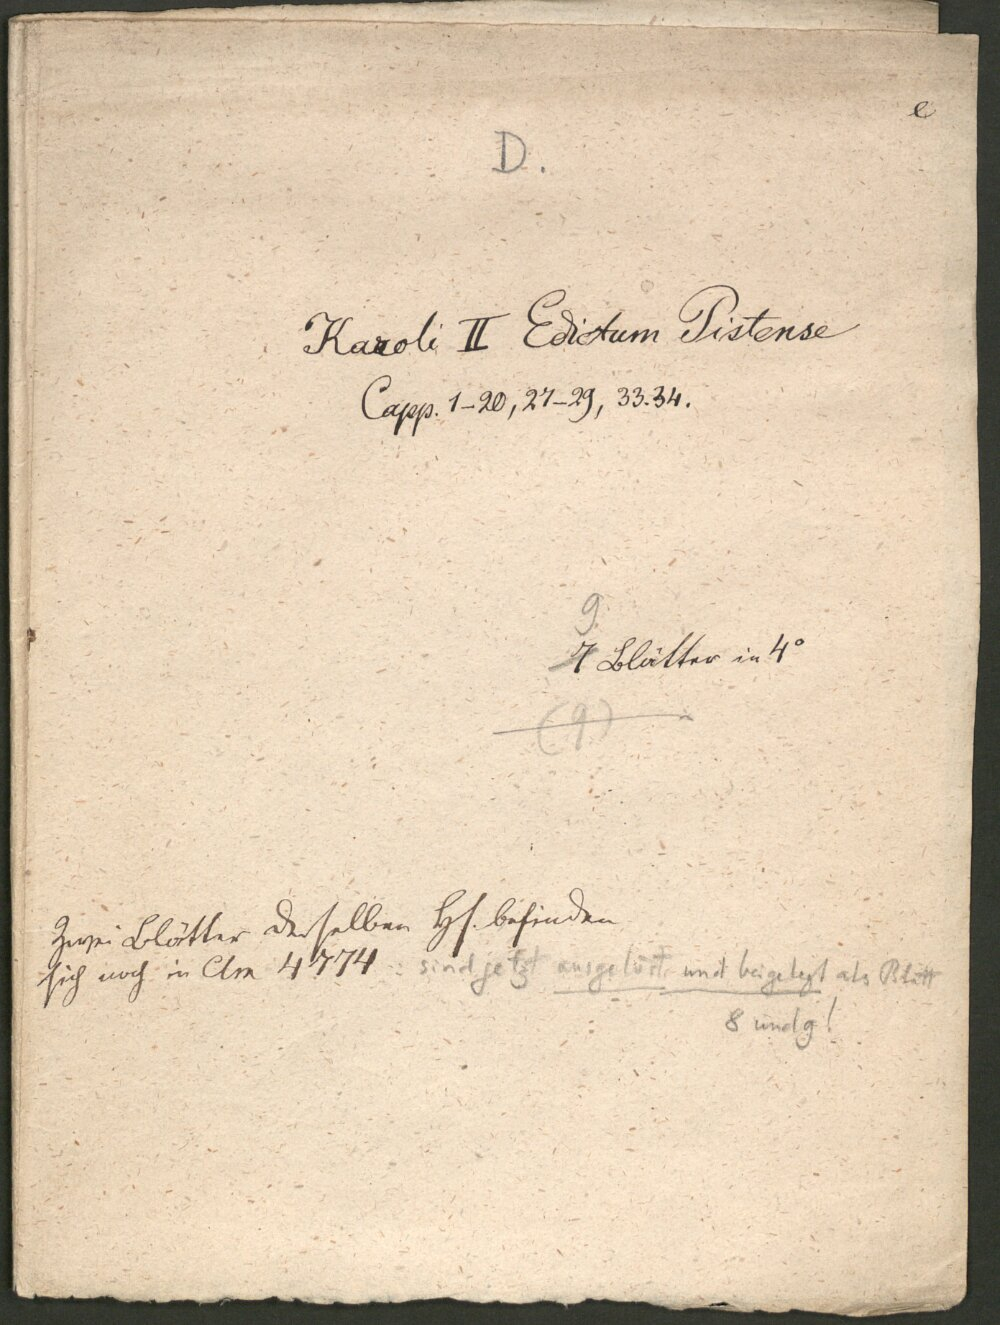 e
D.
Karoli II Edictum Pistense
Capp. 1-20, 27-29, 33.34.
9.
7 Blätter in 4°
(9.)
Zwei Blätter derselben Hs. befinden
sich noch in Clm 4774. sind jetzt ausgelöst und beigelegt als Blatt
8 und 9!